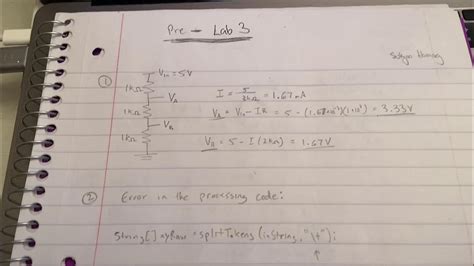 Pre - Lab 3
①
Vin = 5V
1kΩ
VA
1kΩ
VB
1kΩ
I = 5 / 3kΩ = 1.67mA
VA = Vin - IR = 5 - (1.67×10⁻³)(1×10³) = 3.33V
VB = 5 - I(2kΩ) = 1.67V
② Error in the processing code:
String[] myRaw = splitTokens(inString, "\t");